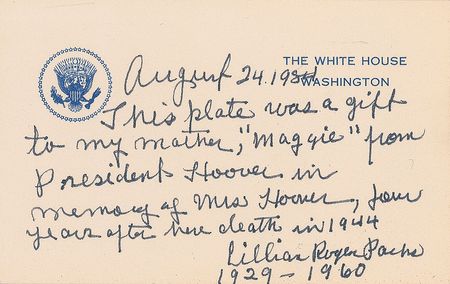 THE WHITE HOUSE
WASHINGTON
August 24.
This plate was a gift
to my mother, "Maggie" from
President Hoover in
memory of Mrs Hoover, four
years after here death in 1944
Lillian Rogers Parks
1929 - 1960